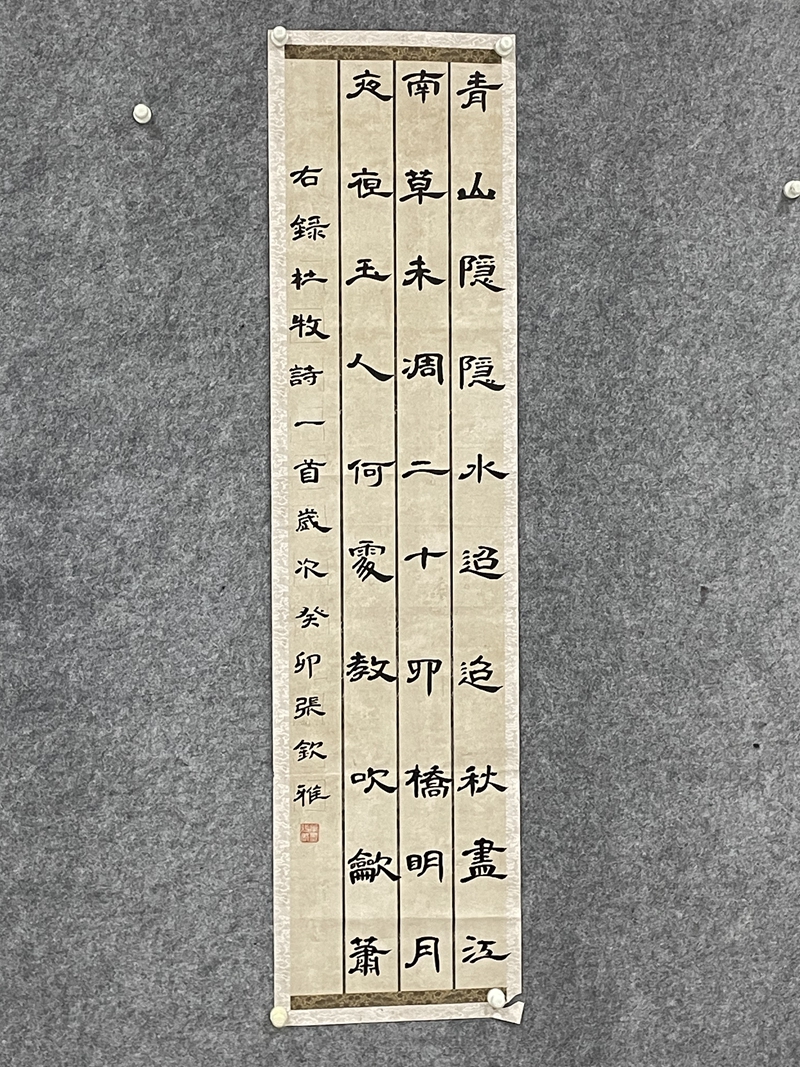 青山隱隱水迢迢秋盡江
南草未凋二十四橋明月
夜夜玉人何處教吹龡蕭
右錄杜牧詩一首歲次癸卯張欽雅